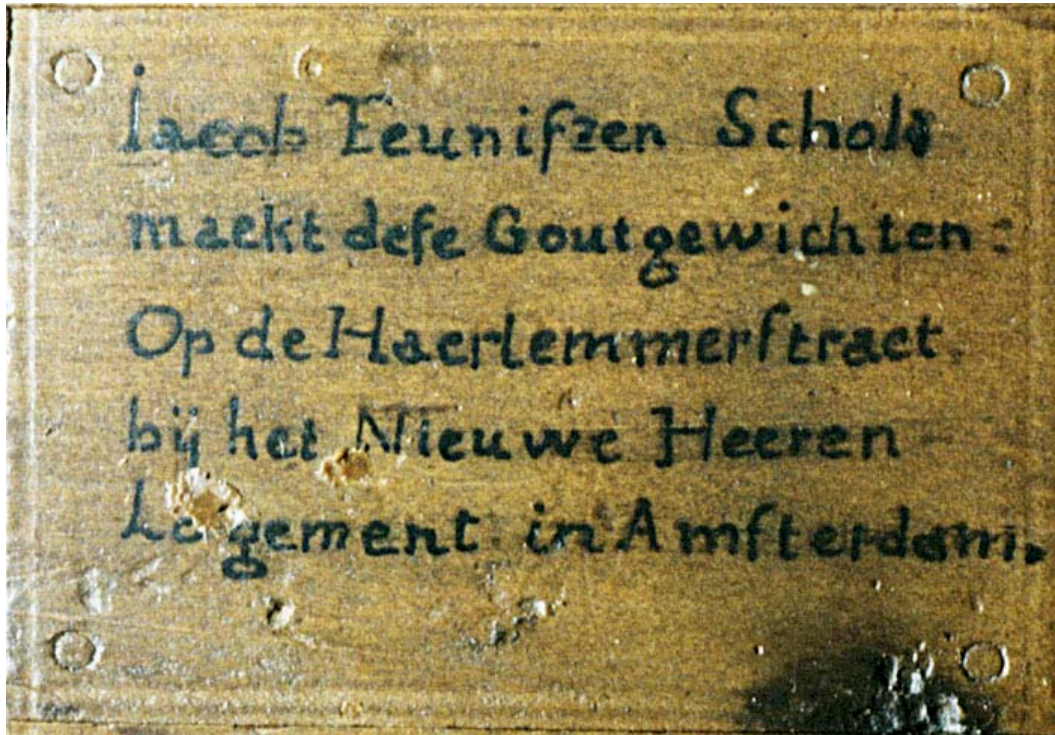 Iacob Teuniſzen Schols
maekt deſe Goutgewichten:
Op de Haerlemmerſtraet.
bij het Nieuwe Heeren
Logement. in Amſterdam.